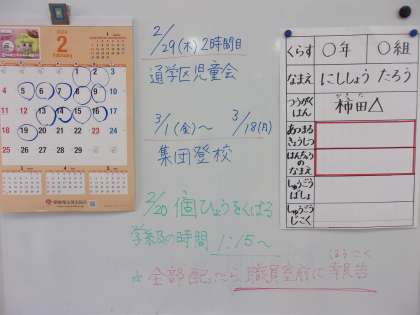 2
February
1 2 3
4 5 6 7 8 9 10
11 12 13 14 15 16 17
18 19 20 21 22 23 24
25 26 27 28 29
2/29(木) 2時間目
通学区児童会
3/1(金)~ 3/18(月)
集団登校
2/20 個ひょうをくばる
学級の時間 1:15~
☆全部配ったら職員室前に
ほうこく
くらす ○年 ○組
なまえ にししょう たろう
つうがく
はん
かきた
柿田△
あつまる
きょうしつ
はんちょう
の
なまえ
しゅうごう
ばしょ
しゅうごう
じこく